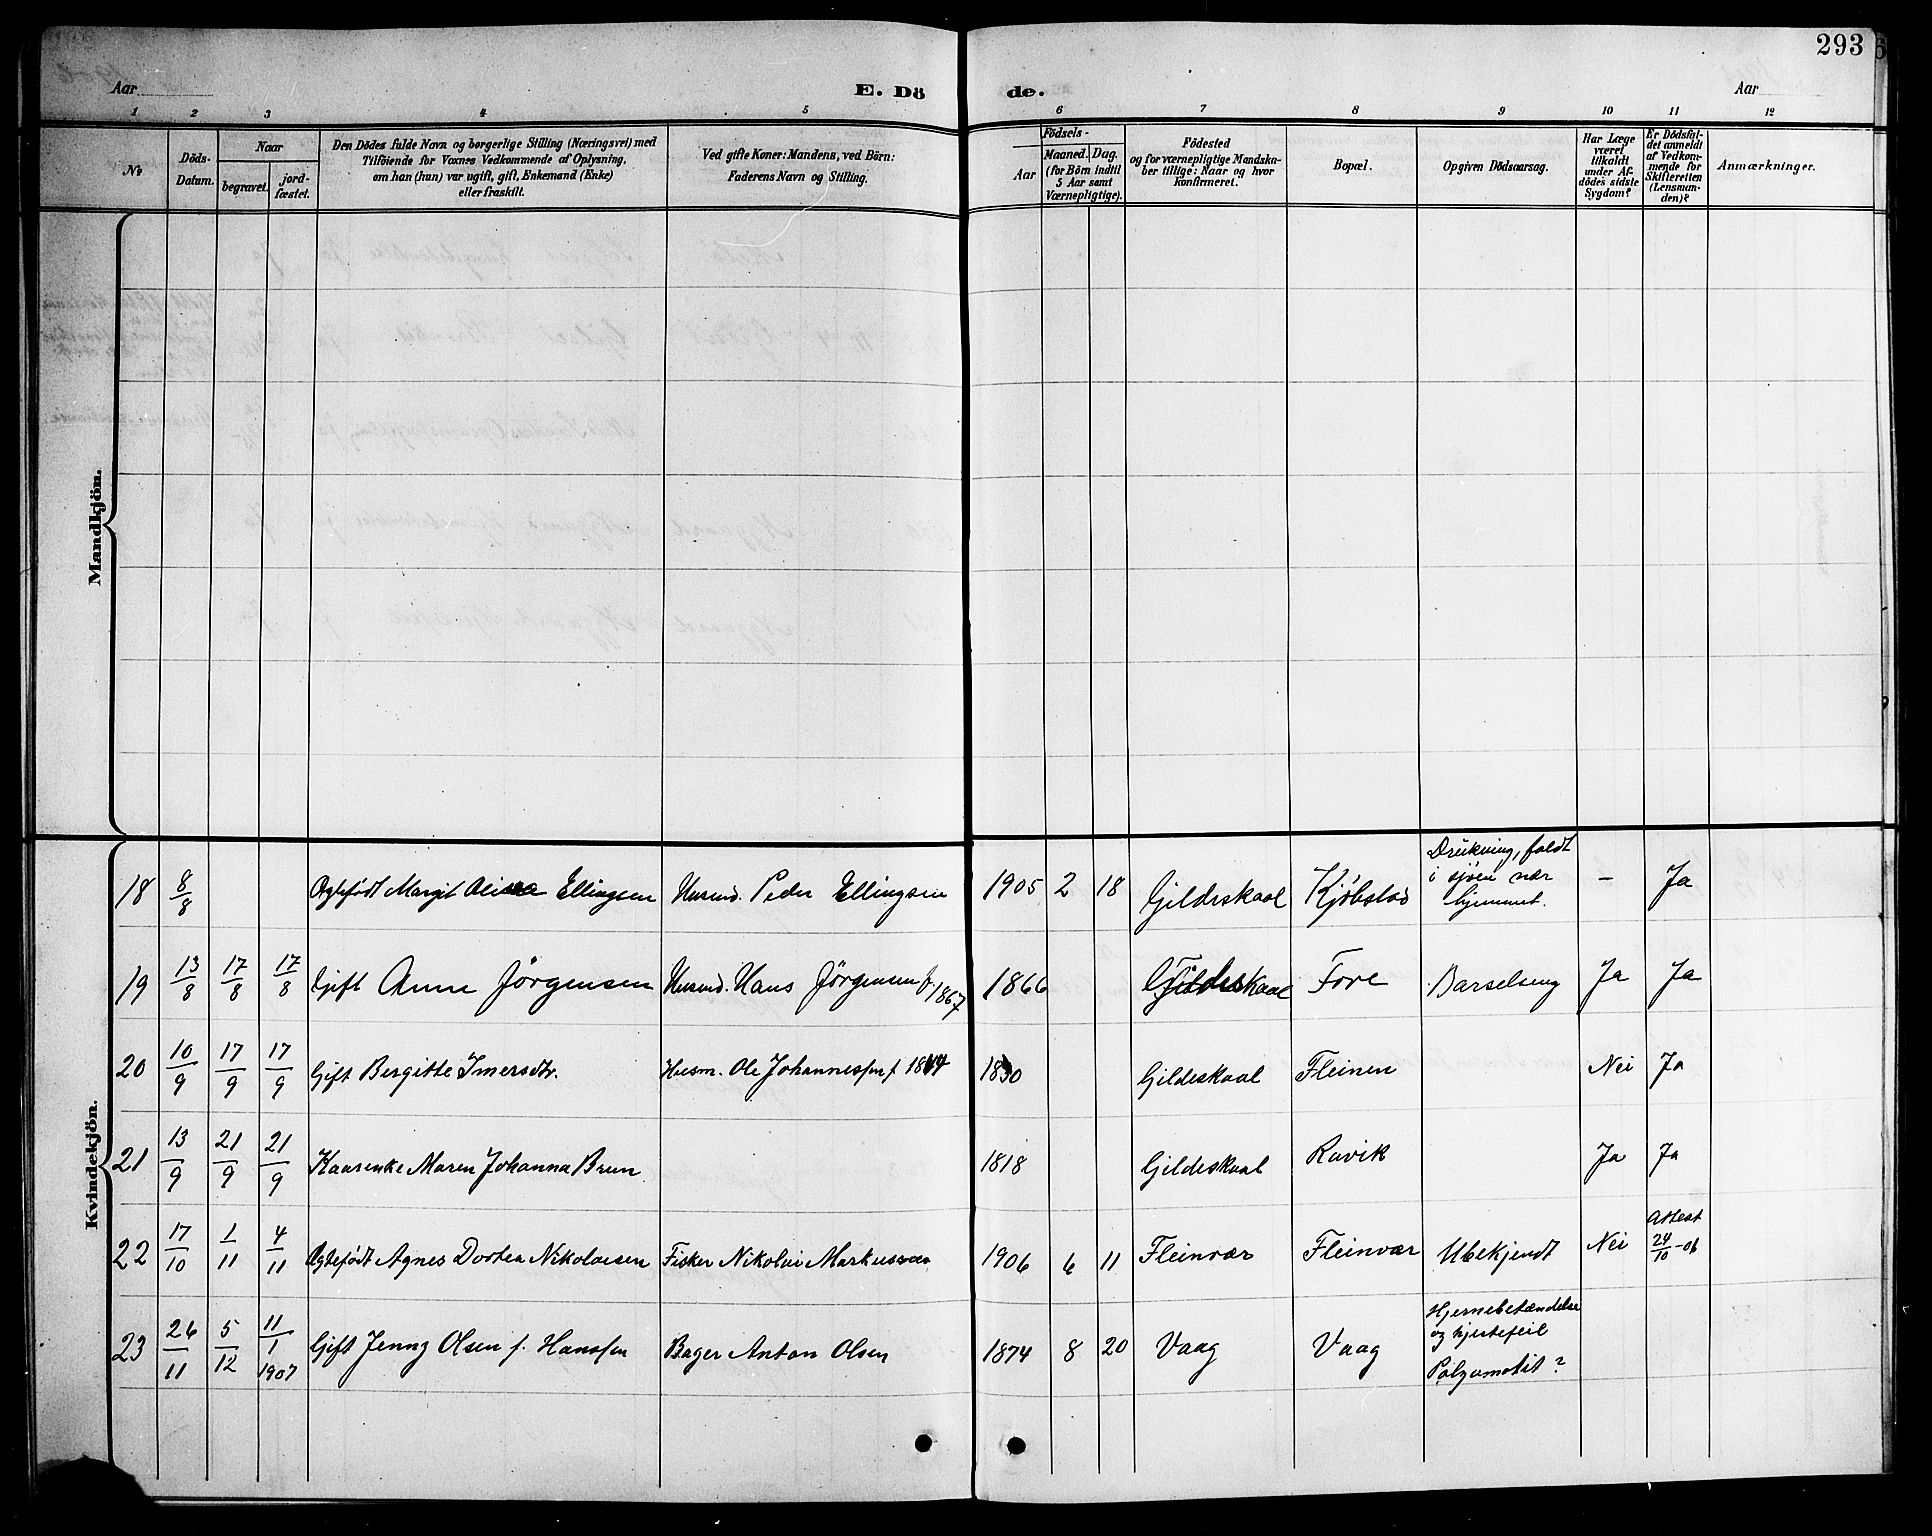 293
Aar
E. Dö
de.
Aar
1 2 3 4 5 6 7 8 9 10 11 12
No
Döds-
Datum.
Naar
begravet.
jord-
fæstet.
Den Dödes fulde Navn og borgerlige Stilling (Næringsvei) med
Tilföiende for Voxnes Vedkommende af Oplysning,
om han (hun) var ugift, gift, Enkemand (Enke)
eller fraskilt.
Ved gifte Koner: Mandens, ved Börn:
Faderens Navn og Stilling.
Aar
Födsels-
Maaned. Dag.
(for Börn indtil
5 Aar samt
Værnepligtige).
Födested
og for værnepligtige Mandska-
ber tillige: Naar og hvor
konfirmeret.
Bopæl.
Opgiven Dödsaarsag.
Har Læge
været
tilkaldt
under Af-
dödes sidste
Sygdom?
Er Dödsfal-
det anmeldt
af Vedkom-
mende for
Skifteretten
(Lensman-
den)?
Anmærkninger.
Mandkjön.
Kvindekjön.
18 8/8 Ægtefødt Margit Ellingsen Husmd. Peder Ellingsen 1905 2 18 Gildeskaal Kjøbstad Drukning, faldt
i sjøen nær
hjemmet. – Ja
19 13/8 17/8 17/8 Gift Anne Jörgensen Husmd. Hans Jörgensen f. 1867 1866 Gildeskaal Fore Barselseng Ja Ja
20 10/9 17/9 17/9 Gift Bergitte Imersdtr. Husm. Ole Johannessen f. 1830 Gildeskaal Fleinen Nei Ja
21 13/9 21/9 21/9 Kaarenke Maren Johanna Brun 1818 Gildeskaal Ravik Ja Ja
22 17/10 1/11 4/11 Ægtefødt Agnes Dortea Nikolaisen Fisker Nikolai Markussen 1906 6 11 Fleinvær Fleinvær Ubekjendt Nei Attest
24/10-06
23 26/11 5/12 11/1 1907 Gift Jenny Olsen f. Hanssen Bager Anton Olsen 1874 8 20 Vaag Vaag Hjernebetændelse
og hjertefeil